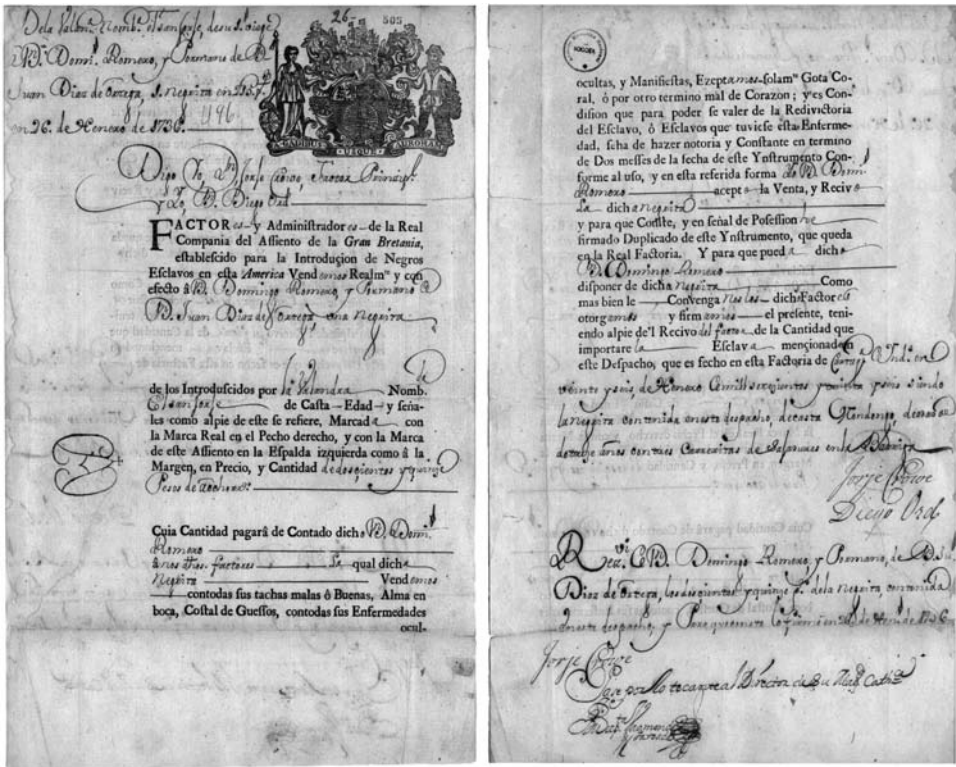 26
505
Juan Diaz de Ortega, 1. Negrita en 215 p
en 26. de Henero de 1736.
A GADIBUS USQUE AURORAM
Digo Yo, Dn Jorje Crowe, Factor Principl
y Yo, D. Diego Ord
FACTORes y Administradores de la Real
Compania del Assiento de la Gran Bretania,
establescido para la Introduçion de Negros
Esclavos en esta America Vendemos Realmte y con
efecto â D. Domingo Romero, y Permano
D. Juan Diaz de Ortega, una Negrita
de los Introduscidos por la Valandra Nomb.
El San Jorje de Casta Edad y seña-
les como alpie de este se refiere, Marcada con
la Marca Real en el Pecho derecho, y con la Marca
de este Assiento en la Espalda izquierda como â la
Margen, en Precio, y Cantidad de doscientos y quinze
Pesos de aocho rs.
Cuia Cantidad pagarâ de Contado dicho D. Dom.
Romero
â nos dhos. factores La qual dicha
Negrita Vendemos
contodas sus tachas malas ô Buenas, Alma en
boca, Costal de Guessos, contodas sus Enfermedades
ocul-
ocultas, y Manifiestas, Ezeptamos solamte Gota Co-
ral, ô por otro termino mal de Corazon; y es Con-
dision que para poder se valer de la Redivictoria
del Esclavo, ô Esclavos que tuviese esta Enferme-
dad, seha de hazer notoria y Constante en termino
de Dos messes de la fecha de este Ynstrumento Con-
forme al uso, y en esta referida forma Yo D. Dom.
Romero acepto la Venta, y Recivo
La dicha Negrita
y para que Conste, y en señal de Posession he
firmado Duplicado de este Ynstrumento, que queda
en la Real Factoria. Y para que pueda dicho
D. Domingo Romero
disponer de dicha Negrita Como
mas bien le Convenga Nos los dichos Factores
otorgamos y firmamos el presente, teni-
endo alpie de'l Recivo del factor de la Cantidad que
importare la Esclava mençionada en
este Despacho, que es fecho en esta Factoria de
veinte y seis, de Henero de mill setezientos y treinta y seis siendo
la Negrita contenida en este despacho, de casta
Jorje Crowe
Diego Ord
Domingo Romero, y Permano, de D. Ju.
Diaz de Ortega, los doscientos y quinze p. de la Negrita, contenida
en este despacho, y
Jorje Crowe